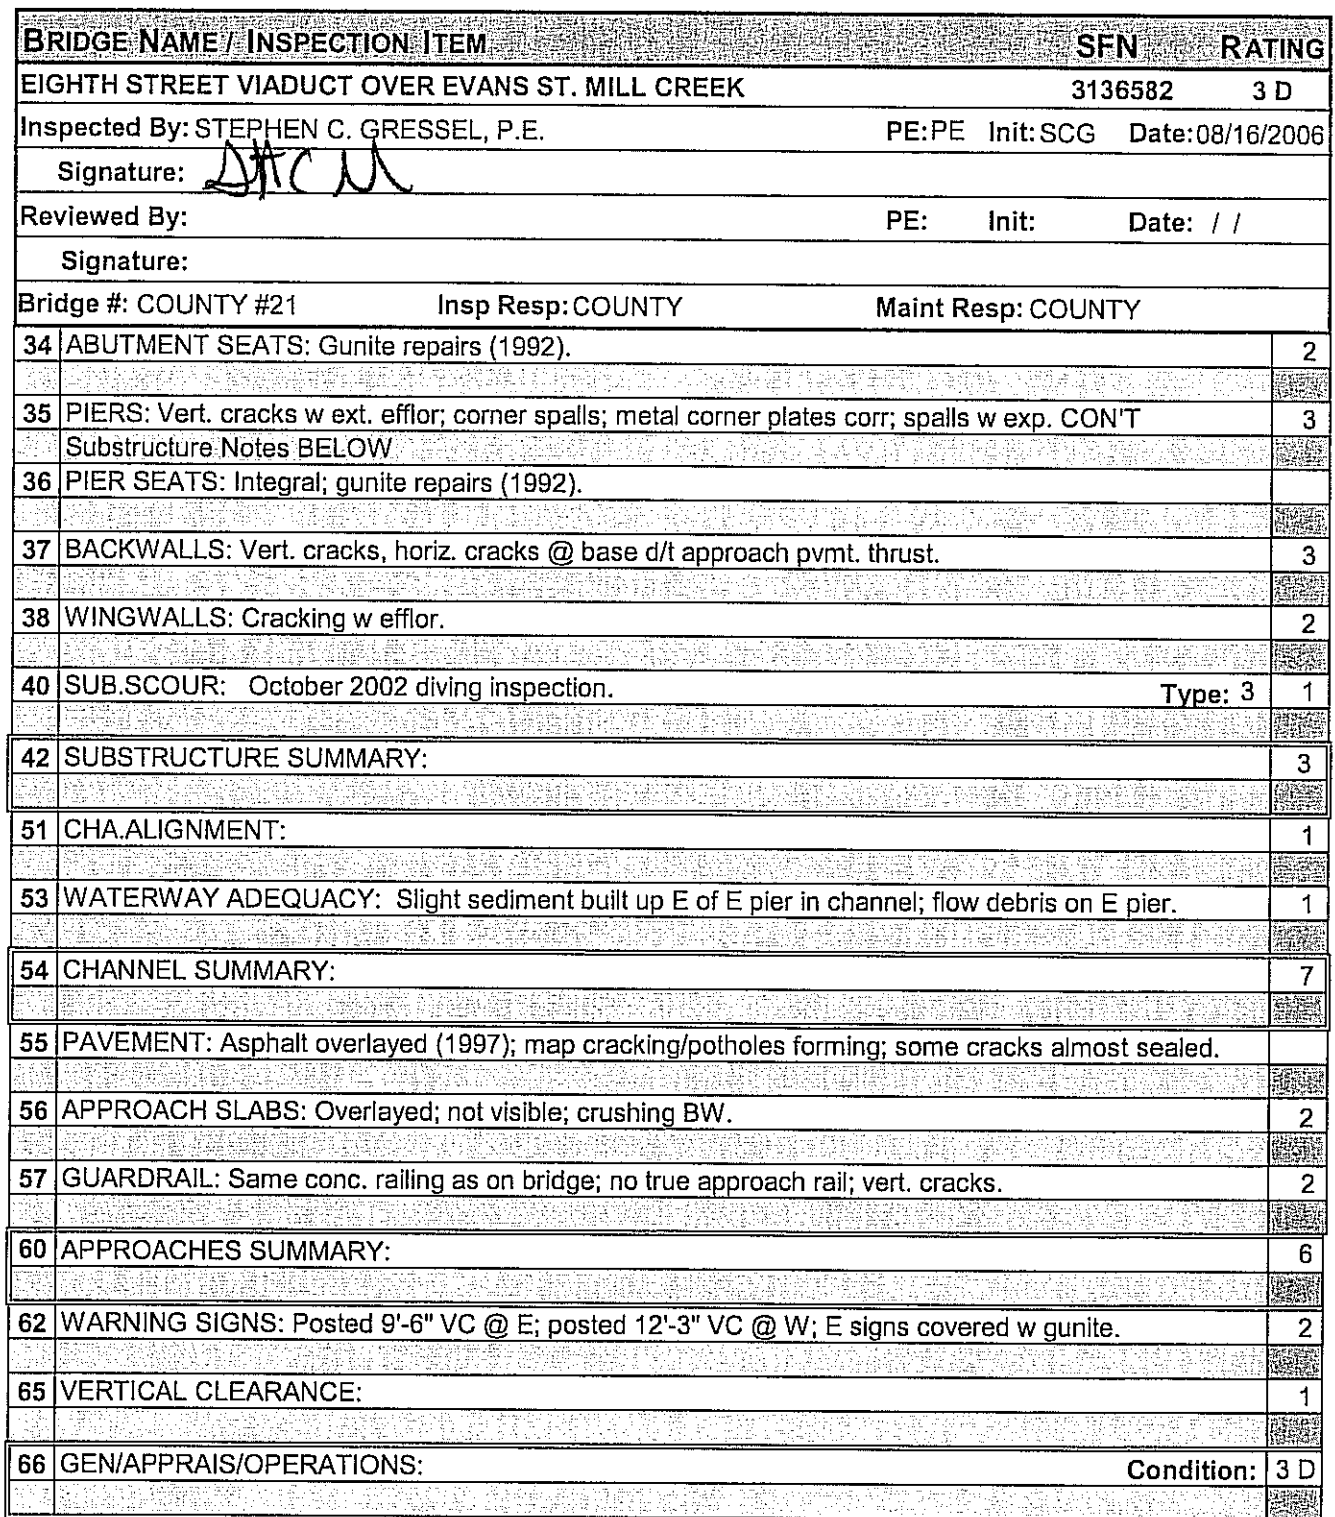 BRIDGE NAME / INSPECTION ITEM SFN RATING
EIGHTH STREET VIADUCT OVER EVANS ST. MILL CREEK 3136582 3 D
Inspected By: STEPHEN C. GRESSEL, P.E. PE: PE Init: SCG Date: 08/16/2006
Signature:
Reviewed By: PE: Init: Date: / /
Signature:
Bridge #: COUNTY #21 Insp Resp: COUNTY Maint Resp: COUNTY
34 ABUTMENT SEATS: Gunite repairs (1992). 2
35 PIERS: Vert. cracks w ext. efflor; corner spalls; metal corner plates corr; spalls w exp. CON'T 3
Substructure Notes BELOW
36 PIER SEATS: Integral; gunite repairs (1992).
37 BACKWALLS: Vert. cracks, horiz. cracks @ base d/t approach pvmt. thrust. 3
38 WINGWALLS: Cracking w efflor. 2
40 SUB.SCOUR: October 2002 diving inspection. Type: 3 1
42 SUBSTRUCTURE SUMMARY: 3
51 CHA.ALIGNMENT: 1
53 WATERWAY ADEQUACY: Slight sediment built up E of E pier in channel; flow debris on E pier. 1
54 CHANNEL SUMMARY: 7
55 PAVEMENT: Asphalt overlayed (1997); map cracking/potholes forming; some cracks almost sealed.
56 APPROACH SLABS: Overlayed; not visible; crushing BW. 2
57 GUARDRAIL: Same conc. railing as on bridge; no true approach rail; vert. cracks. 2
60 APPROACHES SUMMARY: 6
62 WARNING SIGNS: Posted 9'-6" VC @ E; posted 12'-3" VC @ W; E signs covered w gunite. 2
65 VERTICAL CLEARANCE: 1
66 GEN/APPRAIS/OPERATIONS: Condition: 3 D